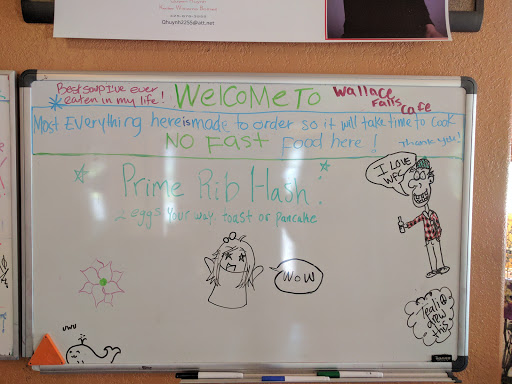 Dhuynh2255@att.net
Best soup I've ever
eaten in my life!
WELCOME TO
Wallace
Falls
Cafe
Most Everything here is made to order so it will take time to cook
NO Fast Food here!
Thank you!
Prime Rib Hash!
2 eggs your way. toast or pancake
I LOVE
WFC
WOW
uwu
Teali
drew
this